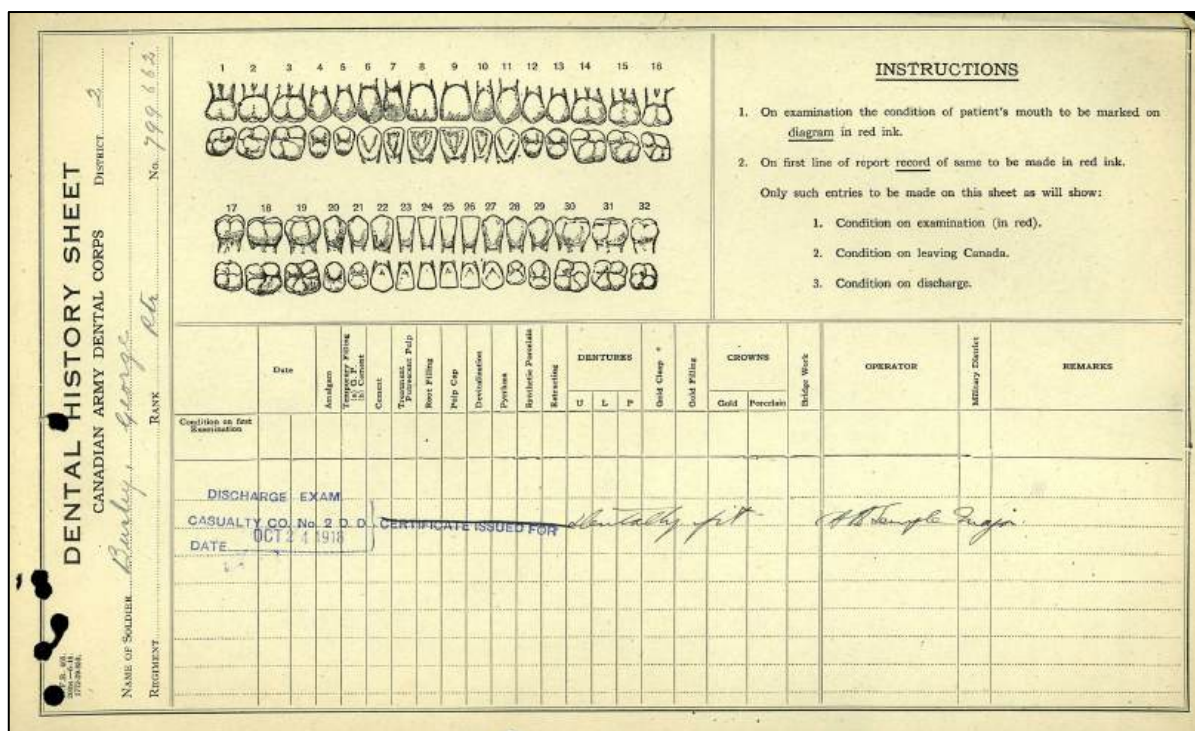 DENTAL HISTORY SHEET
CANADIAN ARMY DENTAL CORPS DISTRICT 2
NAME OF SOLDIER Burley, George
REGIMENT RANK Pte No. 799662
1 2 3 4 5 6 7 8 9 10 11 12 13 14 15 16
17 18 19 20 21 22 23 24 25 26 27 28 29 30 31 32
INSTRUCTIONS
1. On examination the condition of patient's mouth to be marked on
diagram in red ink.
2. On first line of report record of same to be made in red ink.
Only such entries to be made on this sheet as will show:
1. Condition on examination (in red).
2. Condition on leaving Canada.
3. Condition on discharge.
Date
Amalgam
Temporary Filling
(a) G. P.
(b) Cement
Cement
Treatment
Putrescent Pulp
Root Filling
Pulp Cap
Devitalization
Pyorrhea
Synthetic Porcelain
Extracting
DENTURES
U L P
Gold Clasp
Gold Filling
CROWNS
Gold Porcelain
Bridge Work
OPERATOR
Military District
REMARKS
Condition on first
Examination
DISCHARGE EXAM
CASUALTY CO. No. 2 D. D. CERTIFICATE ISSUED FOR Dentally fit Temple Major
DATE OCT 24 1918